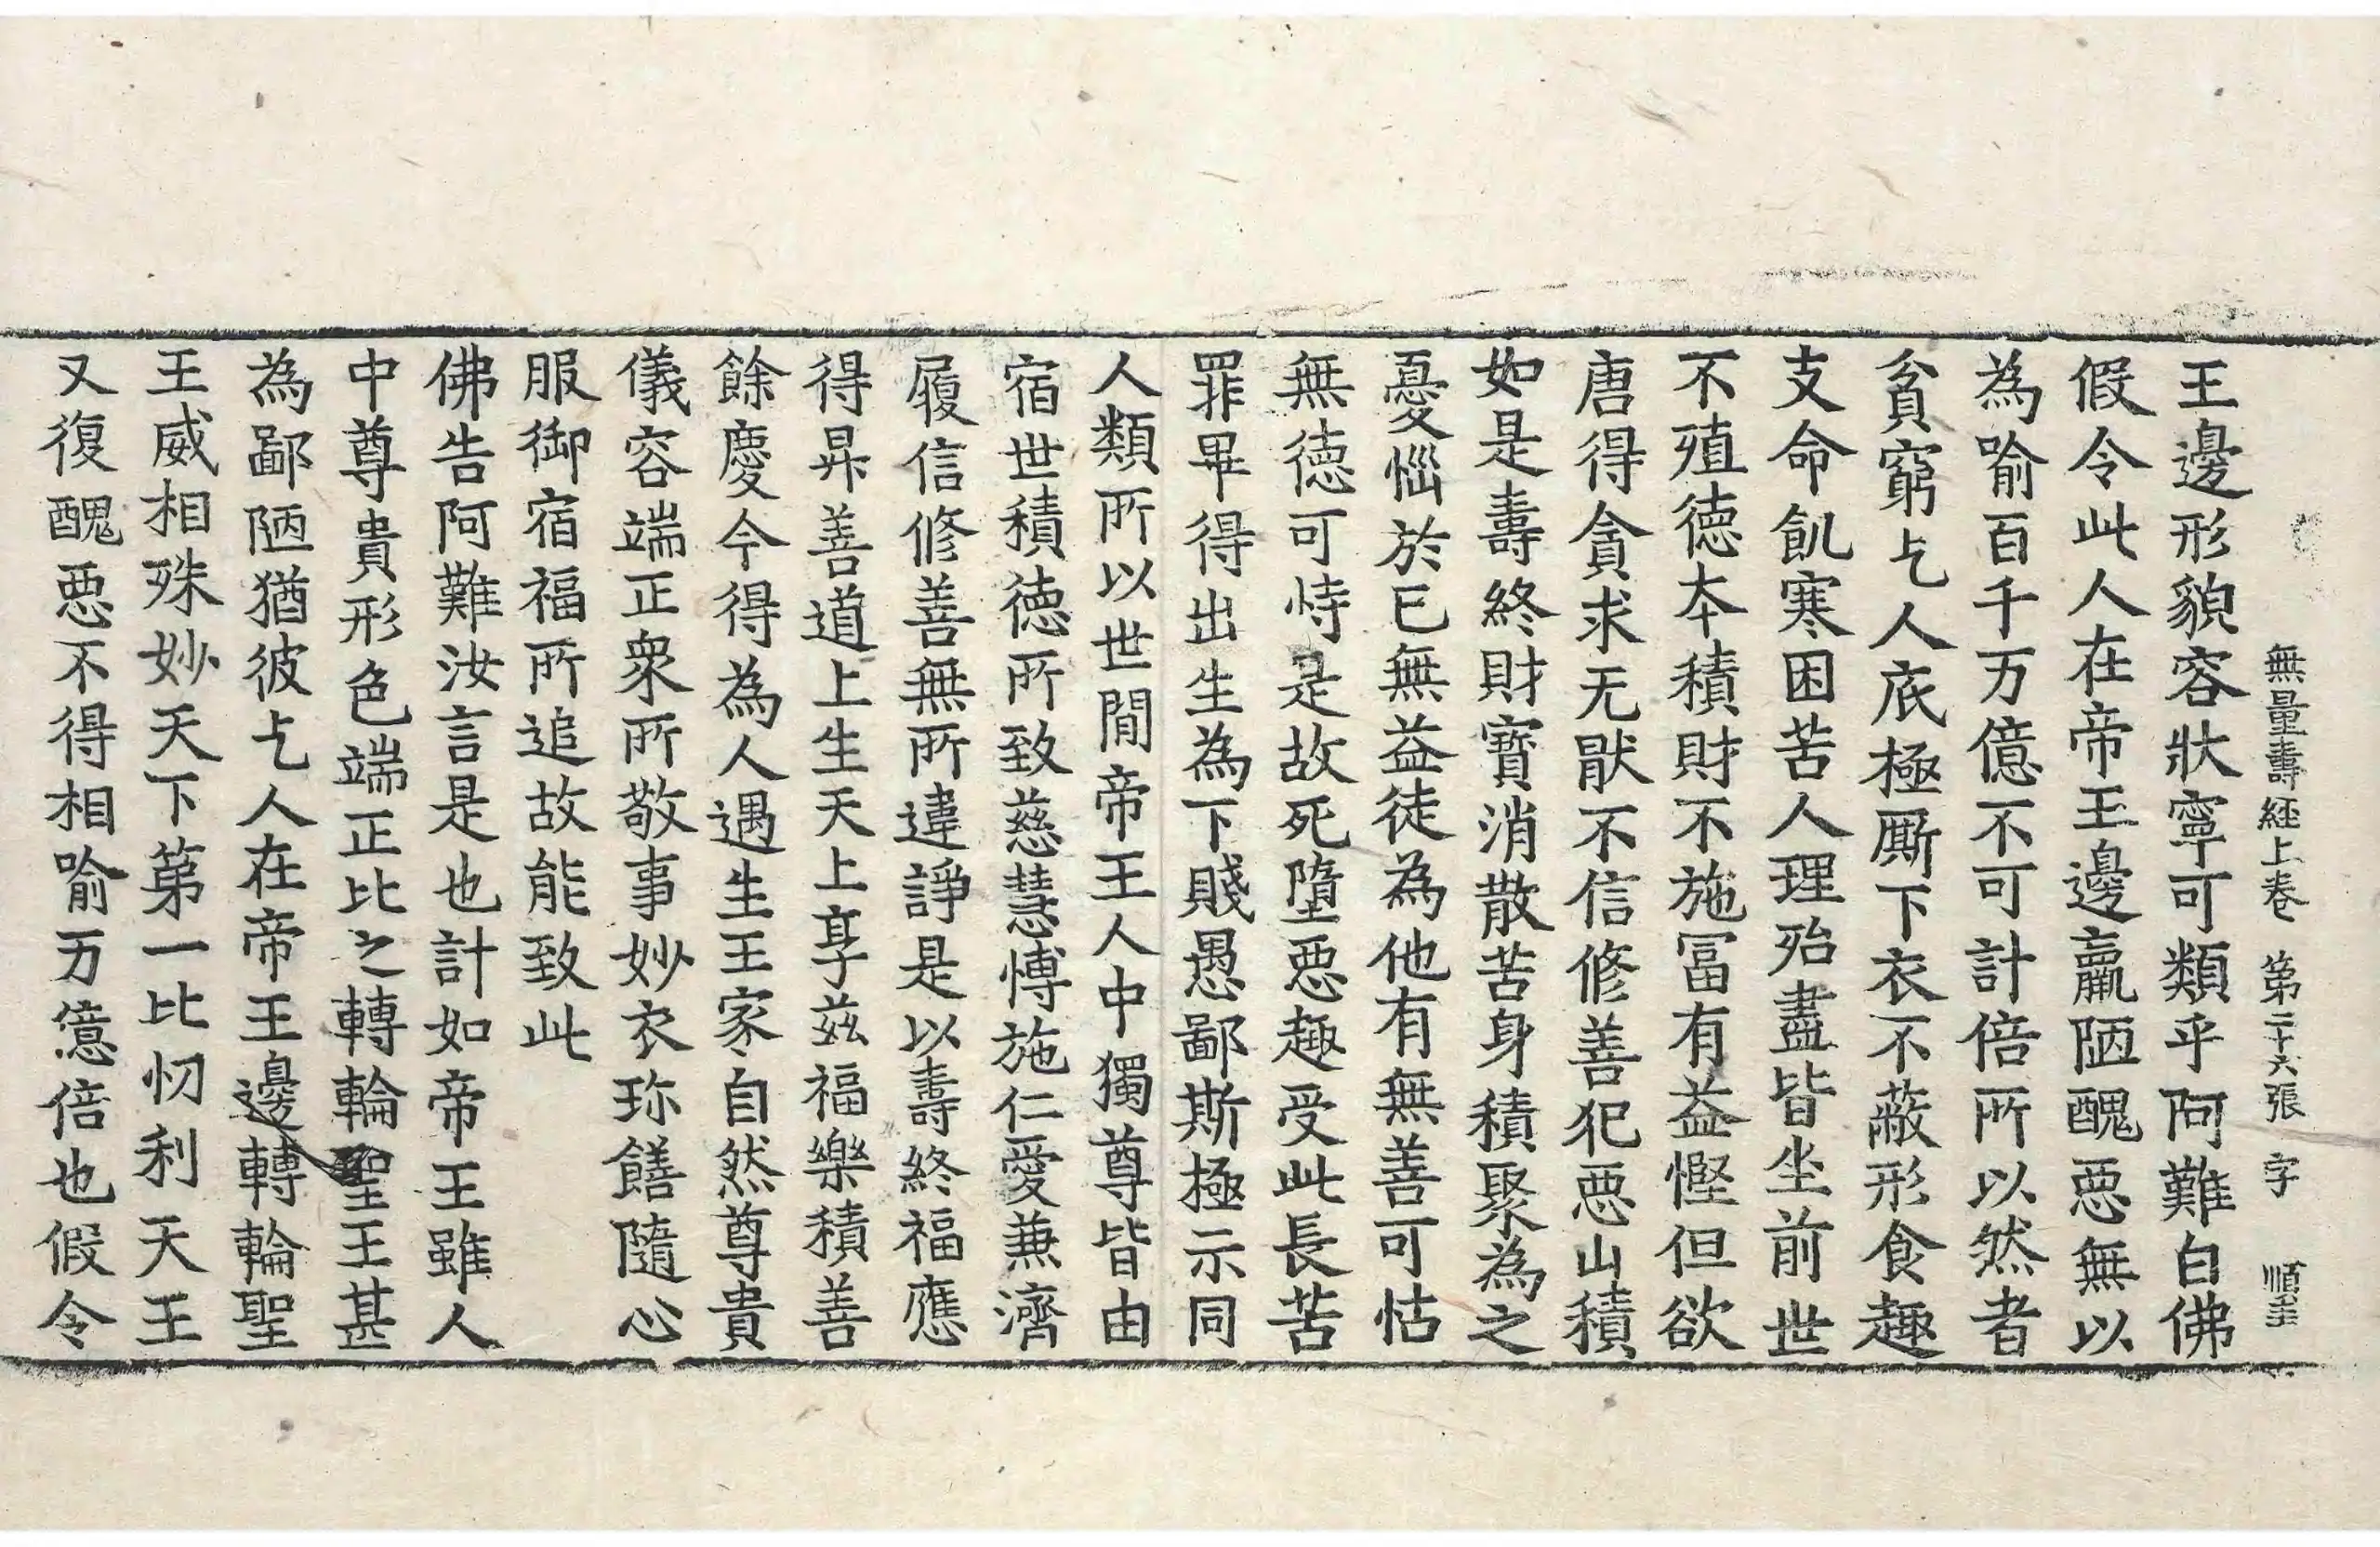 無量壽經上卷 第二十六張 字 順圭
王邊形貌容狀寧可類乎阿難白佛
假令此人在帝王邊羸陋醜惡無以
為喻百千万億不可計倍所以然者
貧窮乞人底極廝下衣不蔽形食趣
支命飢寒困苦人理殆盡皆坐前世
不殖德本積財不施冨有益慳但欲
唐得貪求无猒不信修善犯惡山積
如是壽終財寶消散苦身積聚為之
憂惱於己無益徒為他有無善可怙
無德可恃是故死墮惡趣受此長苦
罪畢得出生為下賤愚鄙斯極示同
人類所以世間帝王人中獨尊皆由
宿世積德所致慈慧愽施仁愛兼濟
履信修善無所違諍是以壽終福應
得昇善道上生天上享茲福樂積善
餘慶今得為人遇生王家自然尊貴
儀容端正衆所敬事妙衣珎饍隨心
服御宿福所追故能致此
佛告阿難汝言是也計如帝王雖人
中尊貴形色端正比之轉輪聖王甚
為鄙陋猶彼乞人在帝王邊轉輪聖
王威相殊妙天下第一比忉利天王
又復醜惡不得相喻万億倍也假令